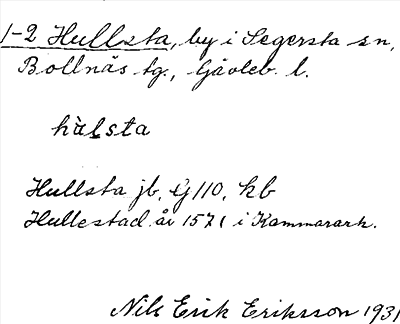 1-2 Hullsta, by i Segersta sn,
Bollnäs tg., Gävleb. l.
hàlsta
Hullsta jb, Gj 110, kb
Hullestad år 1571 i Kammarark.
Nils Erik Eriksson 1931